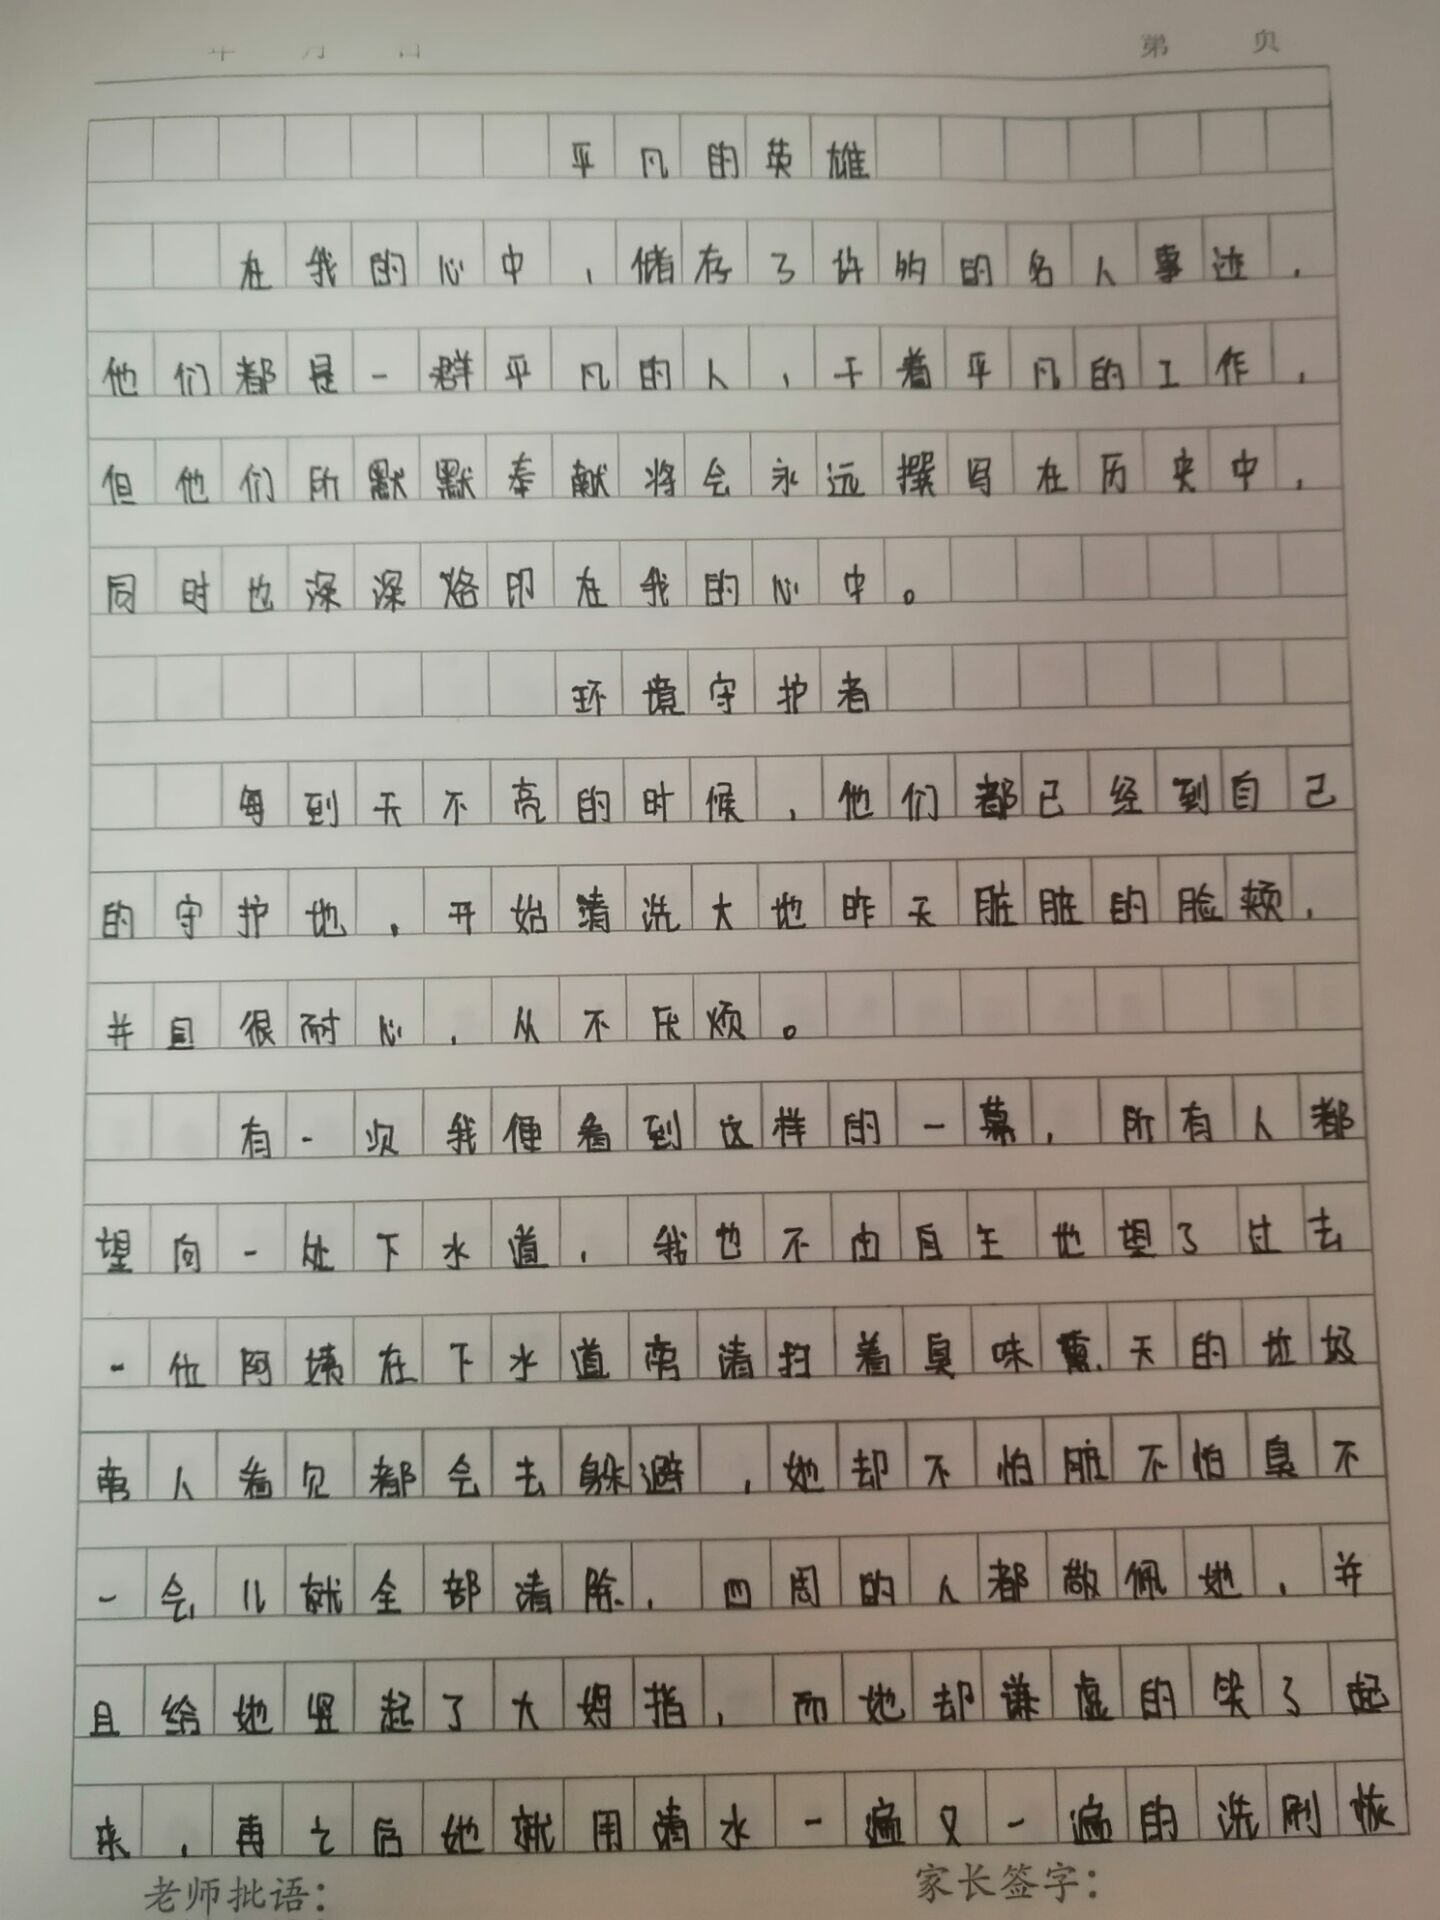 年 月 日 第 页
平凡的英雄
在我的心中，储存了许多的名人事迹，
他们都是一群平凡的人，干着平凡的工作，
但他们所默默奉献将会永远撰写在历史中，
同时也深深烙印在我的心中。
环境守护者
每到天不亮的时候，他们都已经到自己
的守护地，开始清洗大地昨天脏脏的脸颊，
并且很耐心，从不厌烦。
有一次我便看到这样的一幕，所有人都
望向一处下水道，我也不由自主地望了过去
一位阿姨在下水道旁清扫着臭味熏天的垃圾
旁人看见都会去躲避，她却不怕脏不怕臭不
一会儿就全部清除，四周的人都敬佩她，并
且给她竖起了大姆指，而她却谦虚的笑了起
来，再之后她就用清水一遍又一遍的洗刷恢
老师批语： 家长签字：